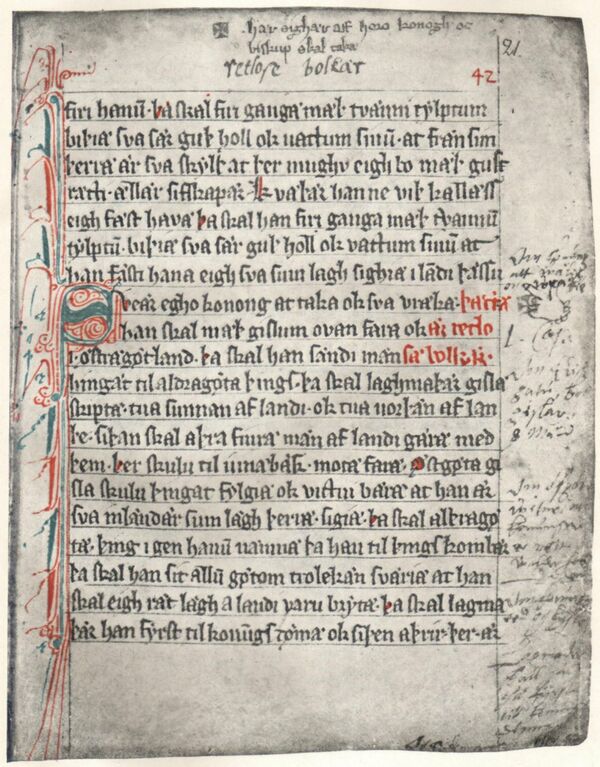 har eighær aff hwro konogh oc
biskup skal taka
retlose bolkær
21
42
firi hanū · þa skal firi ganga mæþ tvænni tylptum
biþiæ sva sær guþ holl ok uattum sinū · at frænsim
þerræ ær sva skylt at þer mughv eigh bo mæþ guz
ræth · ællær sifskapær · kvæþær han ne viþ kallæss
eigh fæst havæ þa skal han firi ganga mæþ tvænnū
tylptū · biþiæ sva sær guþ holl ok vattum sinū at
han fæsti hana eigh sva sum lagh sighiæ i landi þæssu
Svear egho konong at taka ok sva vrækæ · þættæ
han skal mæþ gislum ovan fara ok ær retlo
i ostragøtland · þa skal han sændi mæn sæ bolkær ·
hingat til aldragøta þings · þa skal laghmaþær gisla
skiptæ · tua sunnan af landi · ok tua norþan af lan
de · siþan skal aþra fiuræ mæn af landi gæræ međ
þem · þer skulu til iunabæk · motæ faræ · Ostgøta gi
sla skulu þingat fylgia ok vittni bæræ at han ær
sva inlændær sum lagh þerræ · sigiæ · þa skal aldragø
tæ · þing i gen hanū næmnæ þa han til þings kombær
þa skal han sik allū gøtom trolekæn sværiæ at han
skal eigh ræt lagh a landi varu brytæ · þa skal lagma
þær han fyrst til konūgs dømæ ok siþen aþrir · þer · ær